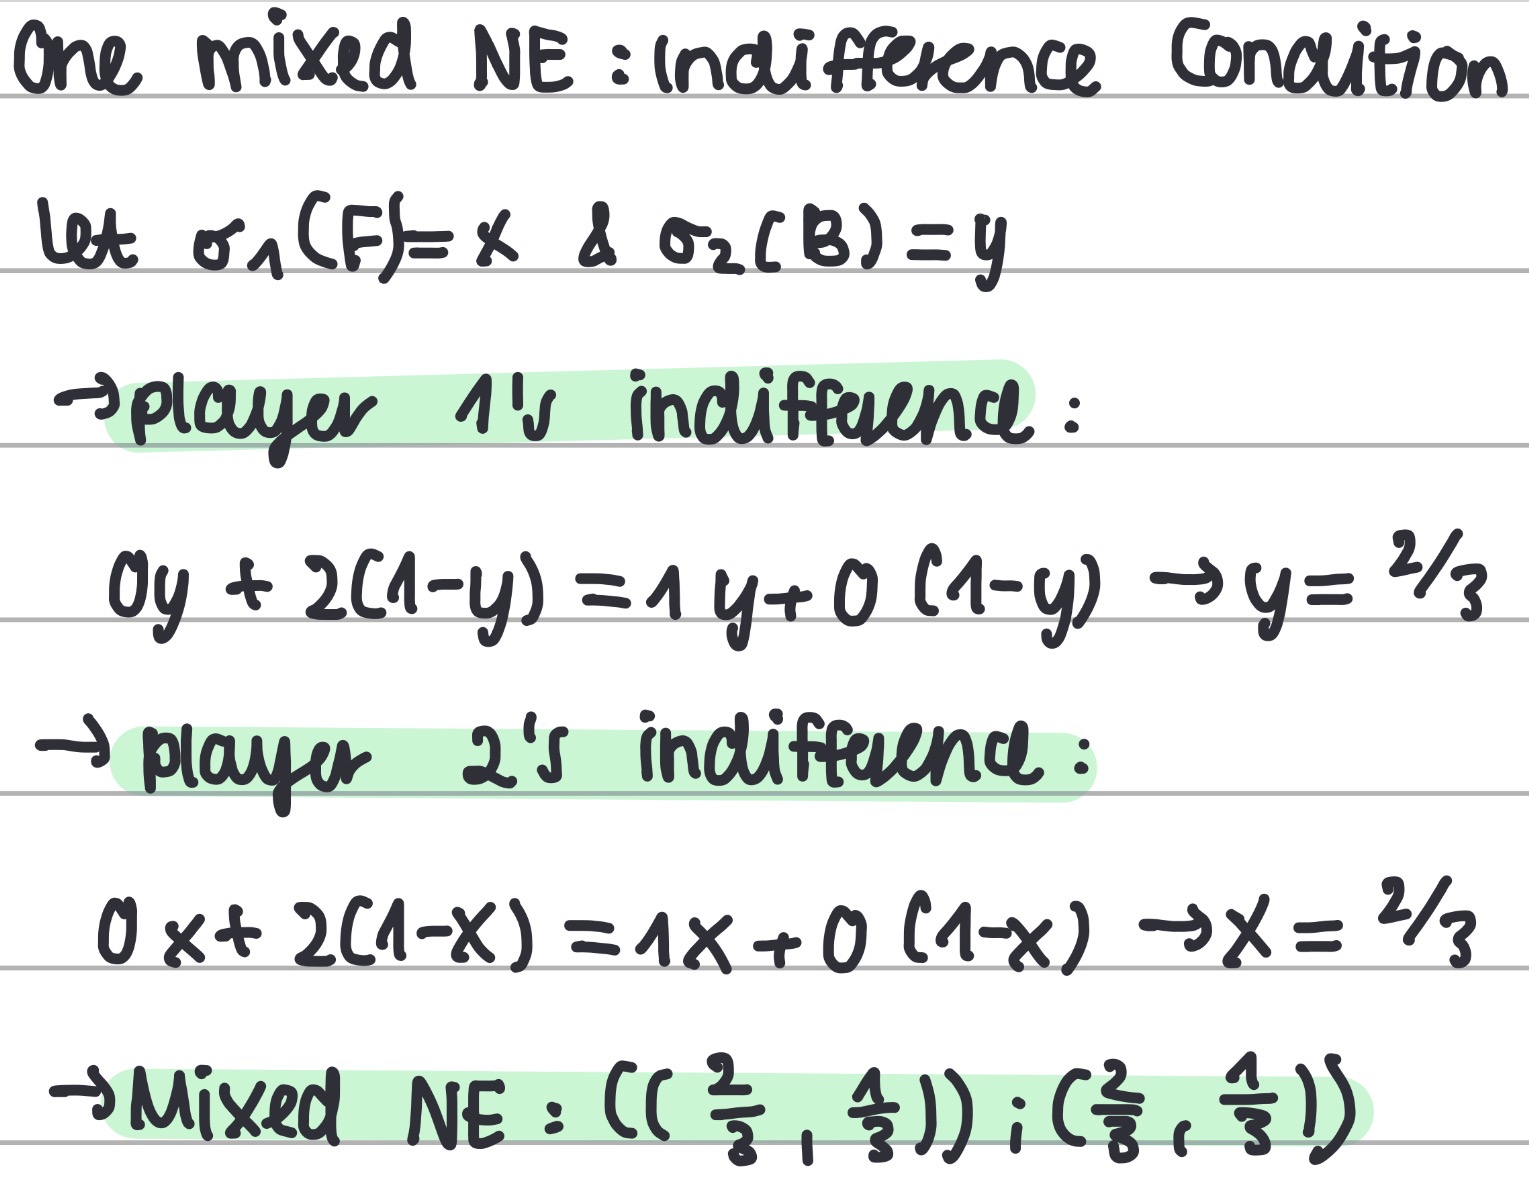 One mixed NE : Indifference Condition
let σ₁(F)= x & σ₂(B) = y
→ player 1's indifference :
0y + 2(1-y) = 1y + 0 (1-y) → y = 2/3
→ player 2's indifference :
0x + 2(1-x) = 1x + 0 (1-x) → x = 2/3
→ Mixed NE : ((2/3, 1/3)) ; (2/3, 1/3))